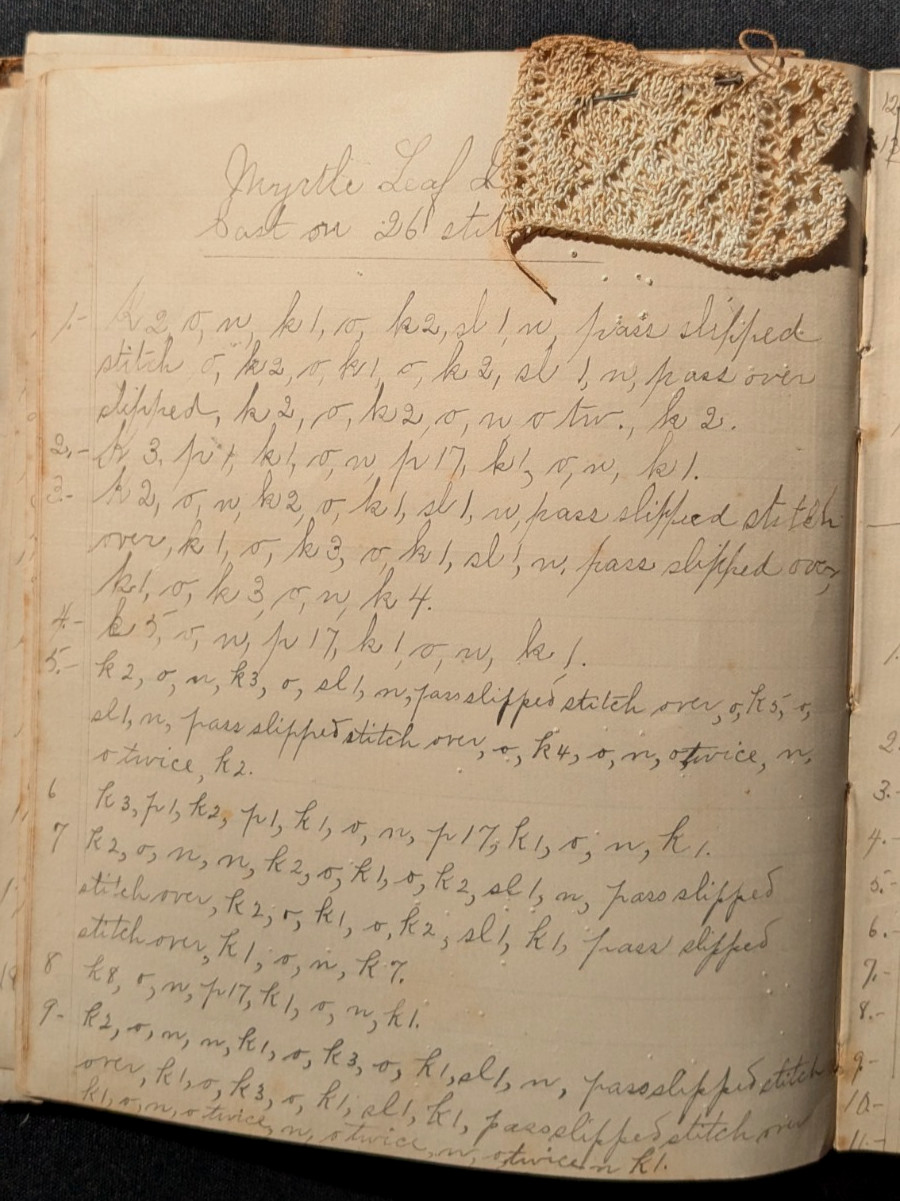 Myrtle Leaf
Cast on 26
1.- K 2, o, n, k 1, o, k 2, sl 1, n, pass slipped
stitch o, k 2, o, k 1, o, k 2, sl 1, n, pass over
slipped, k 2, o, k 2, o, n o tw., k 2.
2.- K 3, p 1, k 1, o, n, p 17, k 1, o, n, k 1.
3.- K 2, o, n, k 2, o, k 1, sl 1, n, pass slipped stitch
over, k 1, o, k 3, o, k 1, sl 1, n, pass slipped over,
k 1, o, k 3, o, n, k 4.
4.- k 5, o, n, p 17, k 1, o, n, k 1.
5.- k2, o, n, k3, o, sl 1, n, pass slipped stitch over, o, k5, o,
sl 1, n, pass slipped stitch over, o, k4, o, n, o twice, n,
o twice, k2.
6 k3, p1, k2, p1, k1, o, n, p17, k1, o, n, k1.
7 k2, o, n, n, k2, o, k1, o, k2, sl 1, n, pass slipped
stitch over, k2, o, k1, o, k2, sl 1, k1, pass slipped
stitch over, k1, o, n, k7.
8 k8, o, n, p17, k1, o, n, k1.
9- k2, o, n, n, k1, o, k3, o, k1, sl 1, n, pass slipped stitch
over, k1, o, k3, o, k1, sl 1, k1, pass slipped stitch over
k1, o, n, o twice, n, o twice, n, o twice n k1.
12
1.
2.
3.-
4.-
5.-
6.-
7.-
8.-
9-
10.-
11.-